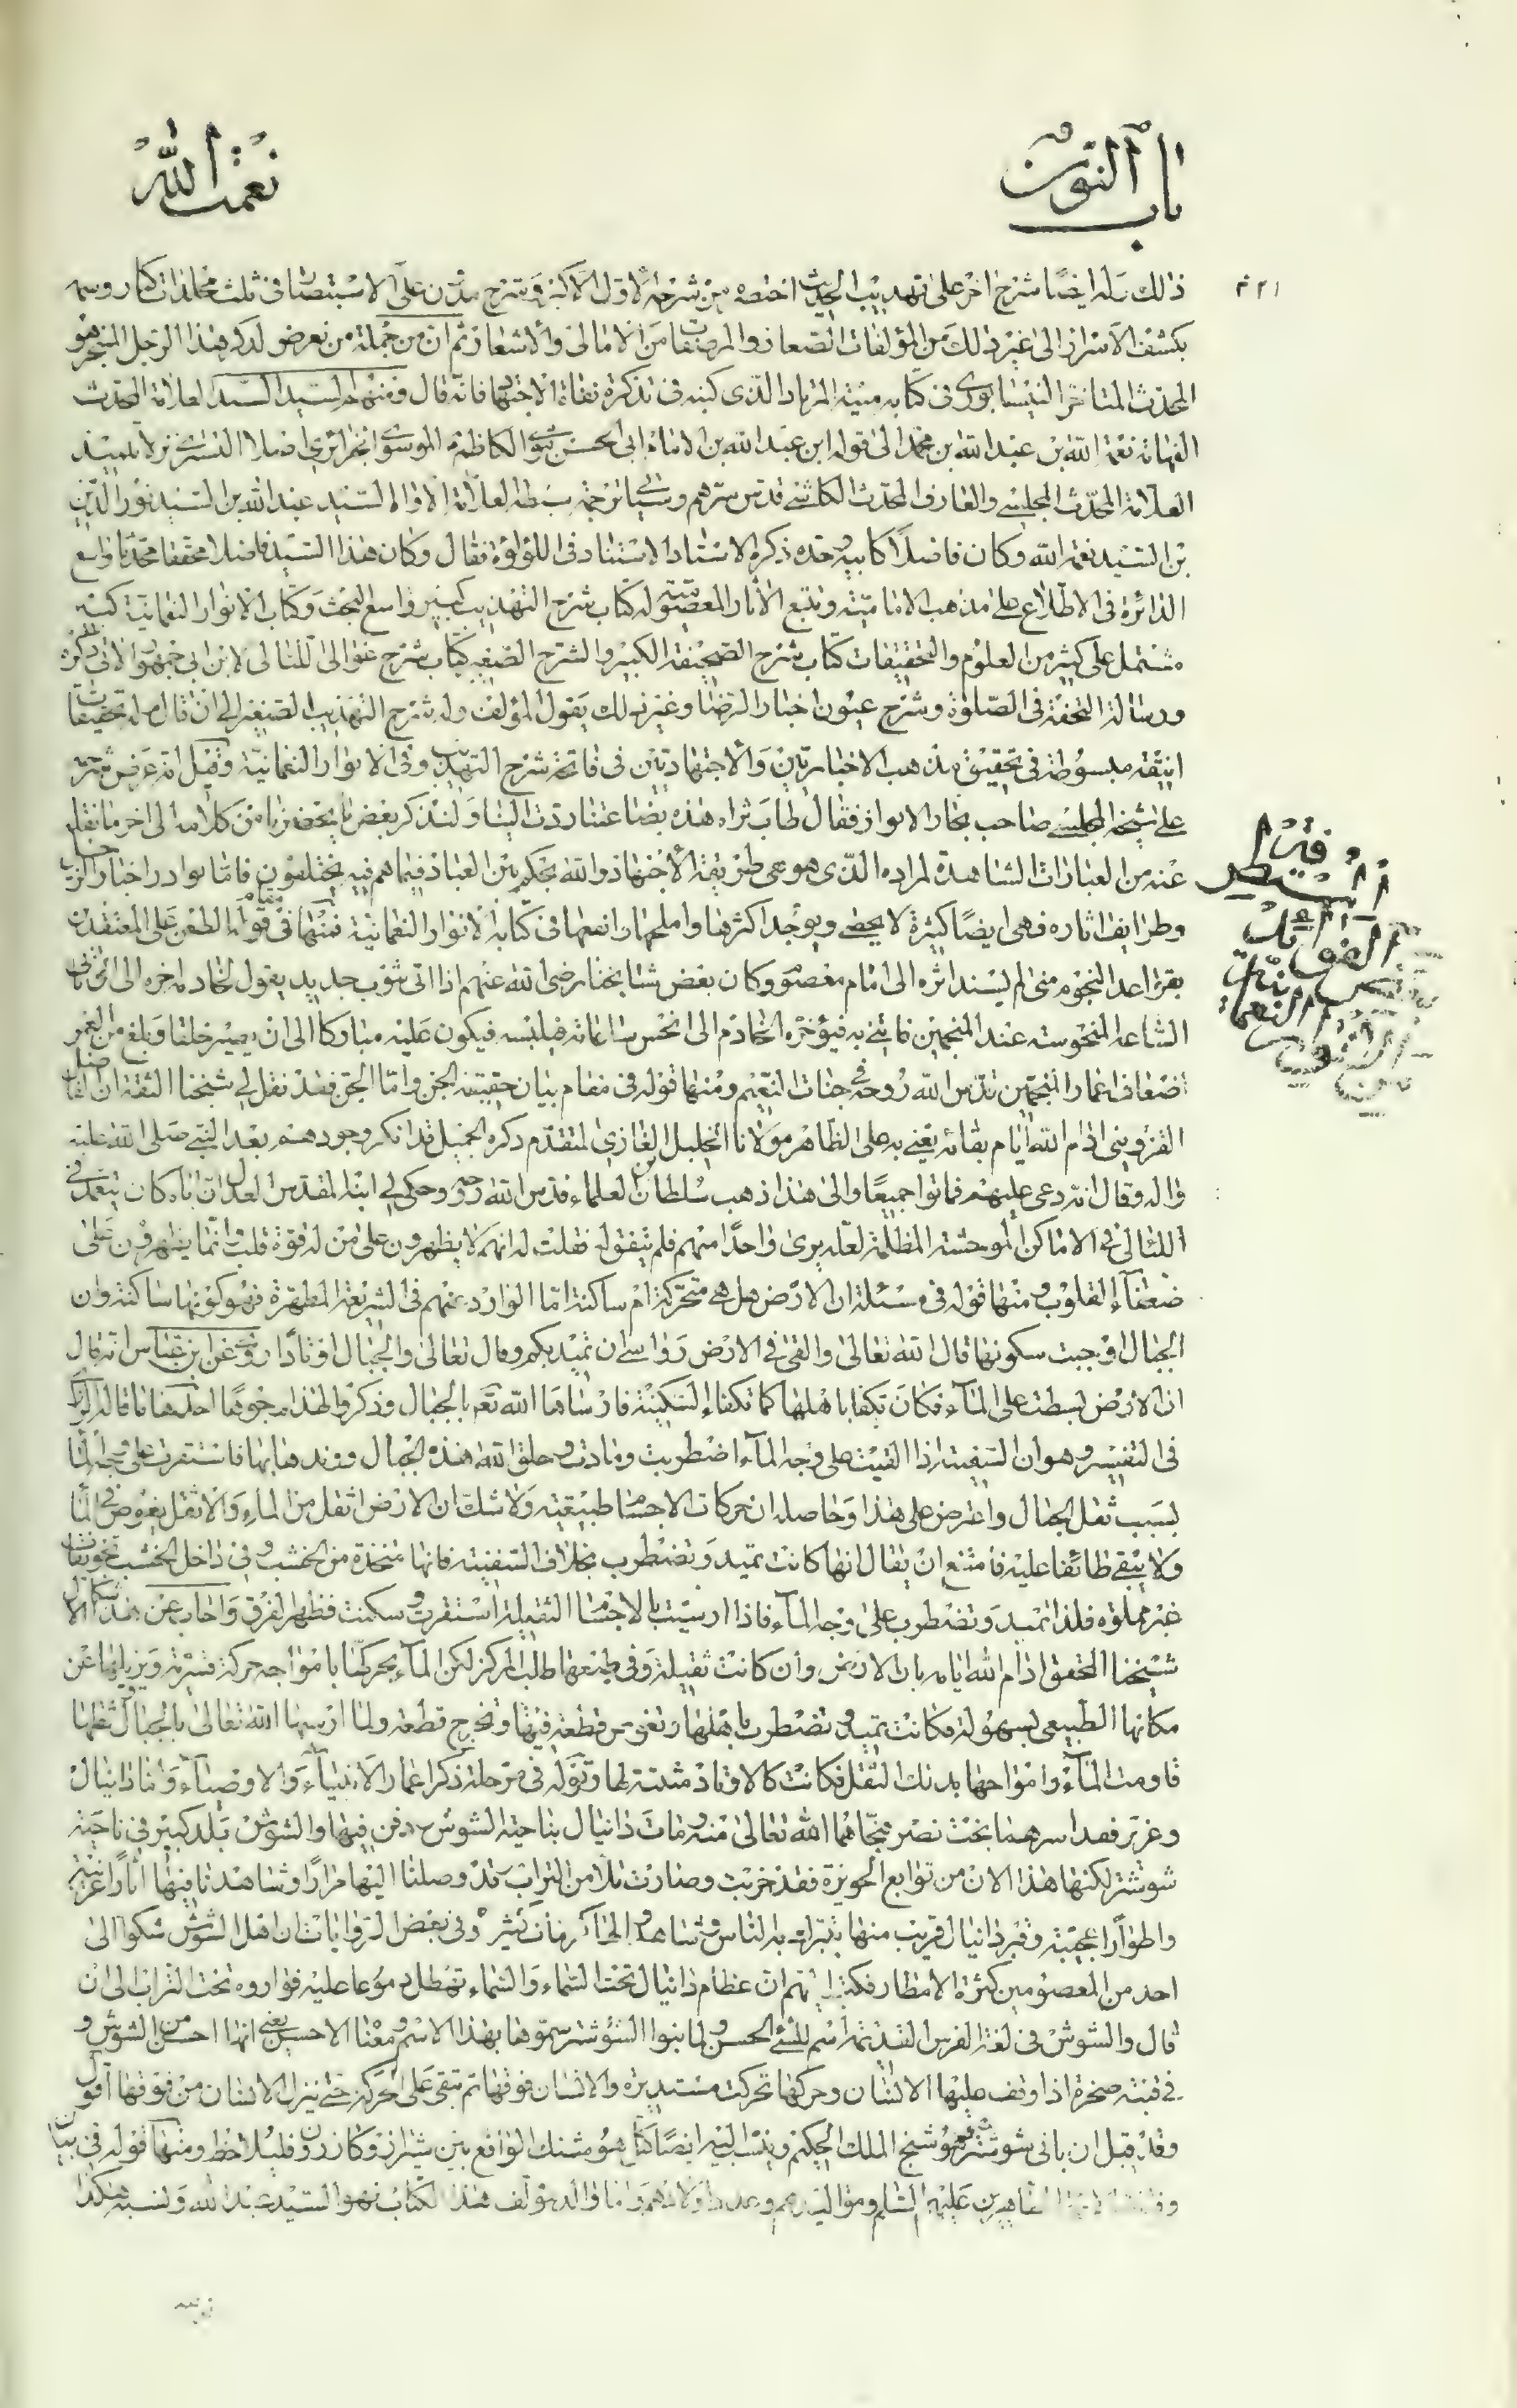 باب النون
نعمت الله
ذلك وله ايضا شرح اخر على تهذيب الحديث اختصه من شرحه الاول الاكبر وشرح مدون على الاستبصار فى ثلث مجلدات كبار وسمه
بكشف الاسرار الى غير ذلك من المؤلفات الصغار والمرصفات من الامالى والاشعار ثم ان من جملة من تعرض لذكر هذا الرجل المتبحر هو
المحدث المتاخر النيسابورى فى كتابه منية المرتاد الذى كتبه فى تذكرة نفاة الاجتهاد فانه قال ومنهم السيد السند العلامة المحدث
الفهامة نعمة الله بن عبد الله بن محمد الى قوله ابن عبد الله بن الامام ابى الحسن موسى الكاظم الموسوى الجزائرى اصلا التسترى نزلا تلميذ
العلامة المحدث المجلسى والعارف المحدث الكاشى قدس سرهم وسياتى ترجمة سبطه العلامة الاواه السيد عبد الله بن السيد نور الدين
بن السيد نعمة الله وكان فاضلا كابيه وجده ذكره الاستاد الاستناد فى اللؤلؤة فقال وكان هذا السيد فاضلا محققا محدثا واسع
الدائرة فى الاطلاع على مذهب الامامية وتتبع الاثار المعصومية له كتاب شرح التهذيب كبير واسع البحث وكتاب الانوار النعمانية كتب
مشتمل على كثير من العلوم والتحقيقات كتاب شرح الصحيفة الكبير والشرح الصغير كتاب شرح غوالى اللئالى لابن ابى جمهور الاتى ذكره
ورسالة التحفة فى الصلوة وشرح عيون اخبار الرضا وغير ذلك يقول المؤلف وله شرح التهذيب الصغير الى ان قال وله تحقيقات
انيقة مبسوطة فى تحقيق مذهب الاخباريين والاجتهاديين فى فاتحة شرح التهذيب وفى الانوار النعمانية وقيل انه عرض شرحه
على شيخه المجلسى صاحب بحار الانوار فقال طاب ثراه هذه بضاعتنا ردت الينا ولنذكر بعض ما يحضرنا من كلامه الى اخر ما نقله
عنه من العبارات الشاهدة لمراده الذى هو عى طريقة الاجتهاد والله يحكم بين العباد فيما هم فيه يختلفون فاما نوادر اخبار الرجل
وطرايف اثاره فهى ايضا كثيرة لا يحصى ويوجد اكثرها واملحها وانعمها فى كتابه الانوار النعمانية فمنها فى قوله مقام الطعن على المعتقدين
بقواعد النجوم متى لم يسند اثره الى امام معصوم وكان بعض مشايخنا رضى الله عنهم اذا اتى بثوب جديد يقول لخادمه اخره الى ان ياتى
الساعة المنحوسة عند المنجمين فاتنى به فيؤخره الخادم الى انحس ساعاته فيلبسه فيكون عليه مباركا الى ان يصير خلقا وبلغ من العمر
اضعاف اعمار المنجمين قدس الله روحه فى جنات النعيم ومنها قوله فى مقام بيان حقيقة الجن واما الجن فقد نقل لى شيخنا الثقة ان الفاضل
القزوينى ادام الله ايام بقائه يعنى به على الظاهر مولانا الخليل الغازى المتقدم ذكره الجميل قد انكر وجودهم بعد النبى صلى الله عليه
واله وقال انه دعى عليهم فماتوا جميعا والى هذا ذهب سلطان العلماء قدس الله روحه وحكى لى ابنه المقدس العدل ان اباه كان يتعمد فى
الليالى فى الاماكن الموحشة المظلمة لعله يرى واحدا منهم فلم يتفق له فقلت له انهم لا يظهرون على من له قوة قلب وانما يظهرون على
ضعفاء القلوب ومنها قوله فى مسئلة ان الارض هل هى متحركة ام ساكنة اما الوارد عنهم فى الشريعة المطهرة فهو كونها ساكنة وان
الجبال اوجبت سكونها قال الله تعالى والقى فى الارض رواسى ان تميد بكم وقال تعالى والجبال اوتادا روى عن ابن عباس انه قال
ان الارض بسطت على الماء فكان تكفا باهلها كما تكفاء السكينة فارساها الله تعم بالجبال وذكروا لهذا وجوها احدها ما قاله الرازى
فى التفسير وهو ان السفينة اذا القيت على وجه الماء اضطربت ومادت وخلق الله هذه الجبال ووتدها بها فاستقرت على وجه الماء
بسبب ثقل الجبال واعترض على هذا وحاصله ان حركات الاجسام طبيعية ولا شك ان الارض اثقل من الماء والاثقل يغوص فى الماء
ولا يبقى طائفا عليه فامتنع ان يقال انها كانت تميد وتضطرب بخلاف السفينة فانها متخذة من الخشب وفى داخل الخشب تجويفات
غير مملوة فلذا تميد وتضطرب على وجه الماء فاذا ارسيت بالاجسام الثقيلة استقرت وسكنت فظهر الفرق واجاب عن هذا الاشكال
شيخنا المحقق ادام الله ايامه بان الارض وان كانت ثقيلة وفى طبعها طالب المركز لكن الماء يحركها بامواجه حركة قسرية ويزيلها عن
مكانها الطبيعى بسهولة فكانت تميد وتضطرب باهلها وتغوص قطعة فيها وتخرج قطعة ولما ارسيها الله تعالى بالجبال وثقلها
قاومت الماء وامواجها بذلك الثقل فكانت كالاوتاد مثبتة لها وقوله فى مرحلة ذكر اعمار الانبياء والاوصياء واما دانيال
وعزير فقد اسرهما بخت نصر فنجاهما الله تعالى منه ومات دانيال بناحية الشوش ودفن فيها والشوش بلد كبير فى ناحية
شوشتر لكنها هذا الان من توابع الحويزة فقد خربت وصارت تلا من التراب قد وصلنا اليها مرارا وشاهدنا فيها اثارا غريبة
واطوارا عجيبة وقبر دانيال قريب منها يتبرك به الناس وشاهدوا كرامات كثير وفى بعض الروايات ان اهل الشوش شكوا الى
احد من المعصومين كثرة الامطار فكتب اليهم ان عظام دانيال تحت السماء والسماء تهطل دموعا عليه فواروه تحت التراب الى ان
قال والشوش فى لغة الفرس القديمة اسم للشئ الحسن ولما بنوا الشوشتر سموها بهذا الاسم ومعنا الاحسن يعنى انها احسن من الشوش و
فى قبته صخرة اذا وقف عليها الانسان وحركها تحركت مستديرة والانسان فوقها ثم تبقى على الحركة حتى ينزل الانسان من فوقها اقول
وقد قيل ان بانى شوشتر هو هوشنج الملك الحكيم وينسب اليه ايضا الواقع بين شيراز وكازرون فليلاحظ ومنها قوله فى بيان
الطاهرين عليهم السلم ومواليدهم وعدد اولادهم واما والد مؤلف هذا الكتاب فهو السيد عبد الله ونسبه هكذا